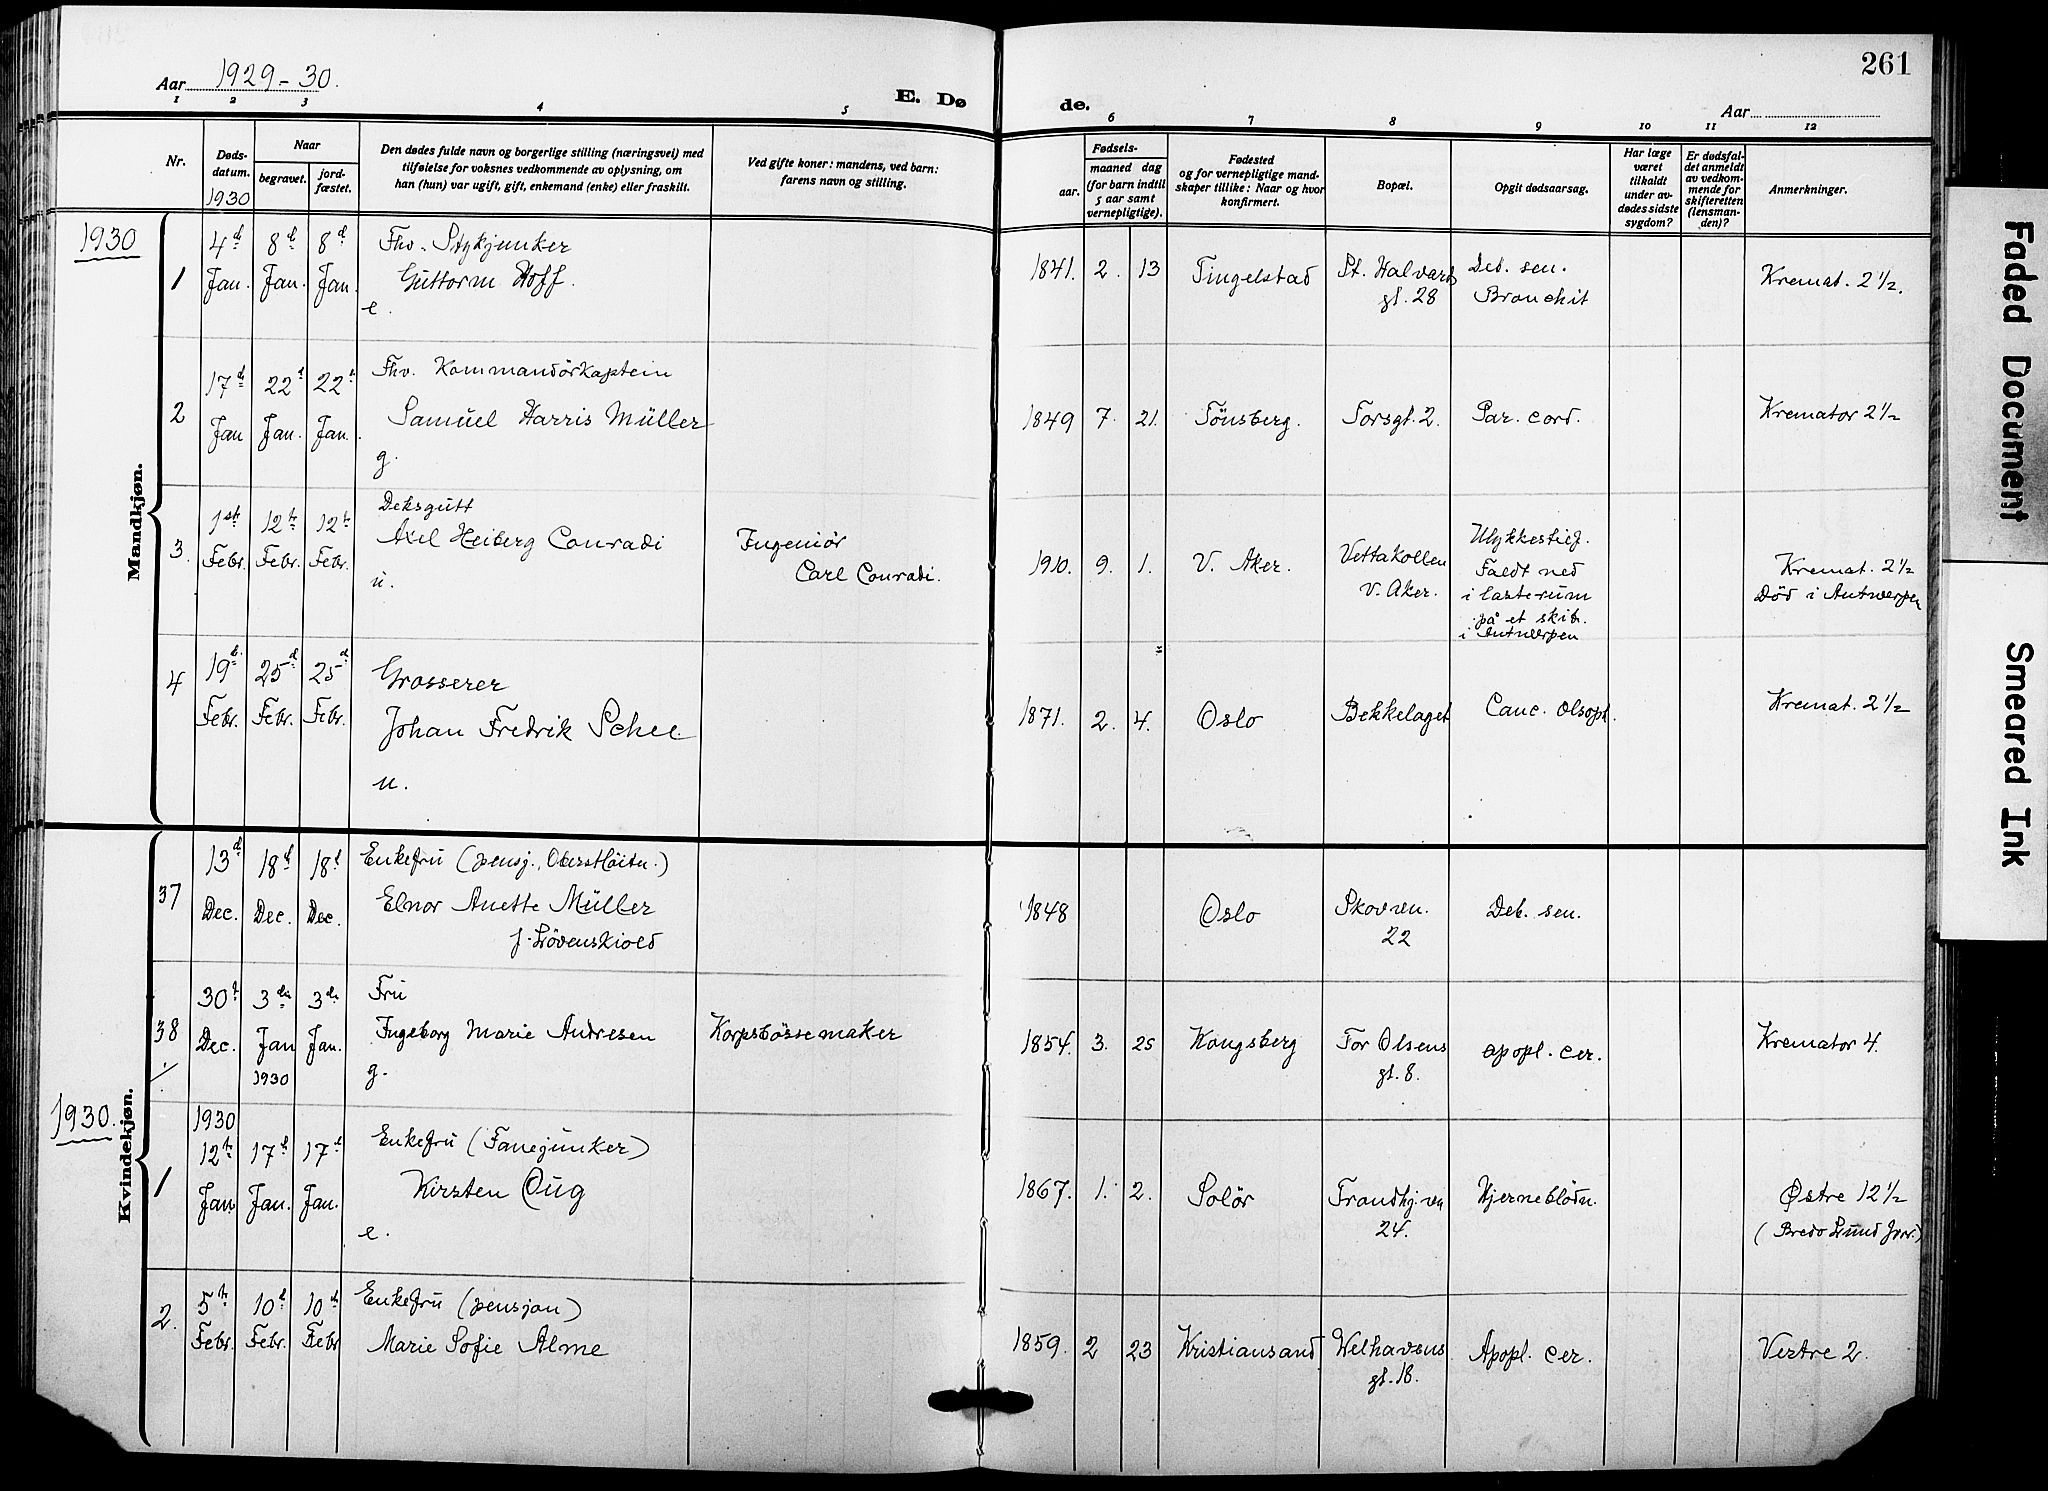 261
Aar 1929-30.
E. Døde.
Aar
1 2 3 4 5 6 7 8 9 10 11 12
Nr.
Døds-
datum.
1930
Naar
begravet.
jord-
fæstet.
Den dødes fulde navn og borgerlige stilling (næringsvei) med
tilføielse for voksnes vedkommende av oplysning, om
han (hun) var ugift, gift, enkemand (enke) eller fraskilt.
Ved gifte koner: mandens, ved barn:
farens navn og stilling.
Fødsels-
aar.
maaned dag
(for barn indtil
5 aar samt
vernepligtige).
Fødested
og for vernepligtige mand-
skaper tillike: Naar og hvor
konfirmert.
Bopæl.
Opgit dødsaarsag.
Har læge
været
tilkaldt
under av-
dødes sidste
sygdom?
Er dødsfal-
det anmeldt
av vedkom-
mende for
skifteretten
(lensman-
den)?
Anmerkninger.
Mandkjøn.
1930
1
4d Jan. 8d Jan. 8d Jan.
Fhv. Stykjunker
Guttorm Hoff.
e.
1841. 2. 13 Tingelstad
St. Halvards
gt. 28
Deb. sen.
Bronchit
Kremat. 2 1/2.
2
17d Jan 22d Jan. 22d Jan.
Fhv. Kommandörkaptein
Samuel Harris Müller
g.
1849 7. 21. Tönsberg. Forsgt. 2. Par. cord. Kremator 2 1/2
3.
1st Febr. 12te Febr. 12te Febr.
Deksgutt
Axel Heiberg Conradi
u.
Ingeniör
Carl Conradi.
1910. 9. 1. V. Aker.
Vettakollen
V. Aker.
Ulykkestilf.
Faldt ned
i lasterum
på et skib.
i Antwerpen
Kremat. 2 1/2
Död i Antwerpen
4
19d. Febr. 25d Febr. 25d Febr.
Grosserer
Johan Fredrik Schee
u.
1871. 2. 4. Oslo Bekkelaget Canc. olsoph. Kremat. 2 1/2
Kvindekjøn.
37
13d Dec. 18d Dec. 18d Dec.
Enkefru (pensj. Oberstlöitn.)
Elnor Anette Müller
f. Lövenskiold
1848 Oslo
Skovvn.
22
Deb. sen.
38
30t Dec. 3die Jan 1930 3die Jan.
Fru
Ingeborg Marie Andresen
g.
Korpsbössemaker
1854. 3. 25 Kongsberg
For Olsens
gt. 8.
apopl. cer.
Kremator 4.
1930.
1930
1
12te Jan 17d Jan. 17d Jan.
Enkefru (Fanejunker)
Kirsten Oug
e.
1867. 1. 2. Solör
Trondhj. vn
24.
Hjerneblödn.
Østre 12 1/2
(Bredo Lund forr.)
2.
5te Febr. 10d Febr. 10d Febr
Enkefru (pensjon)
Marie Sofie Alme
1859. 2 23 Kristiansand
Welhavens
gt. 18.
Apopl. cer.
Vestre 2.
Faded Document
Smeared Ink